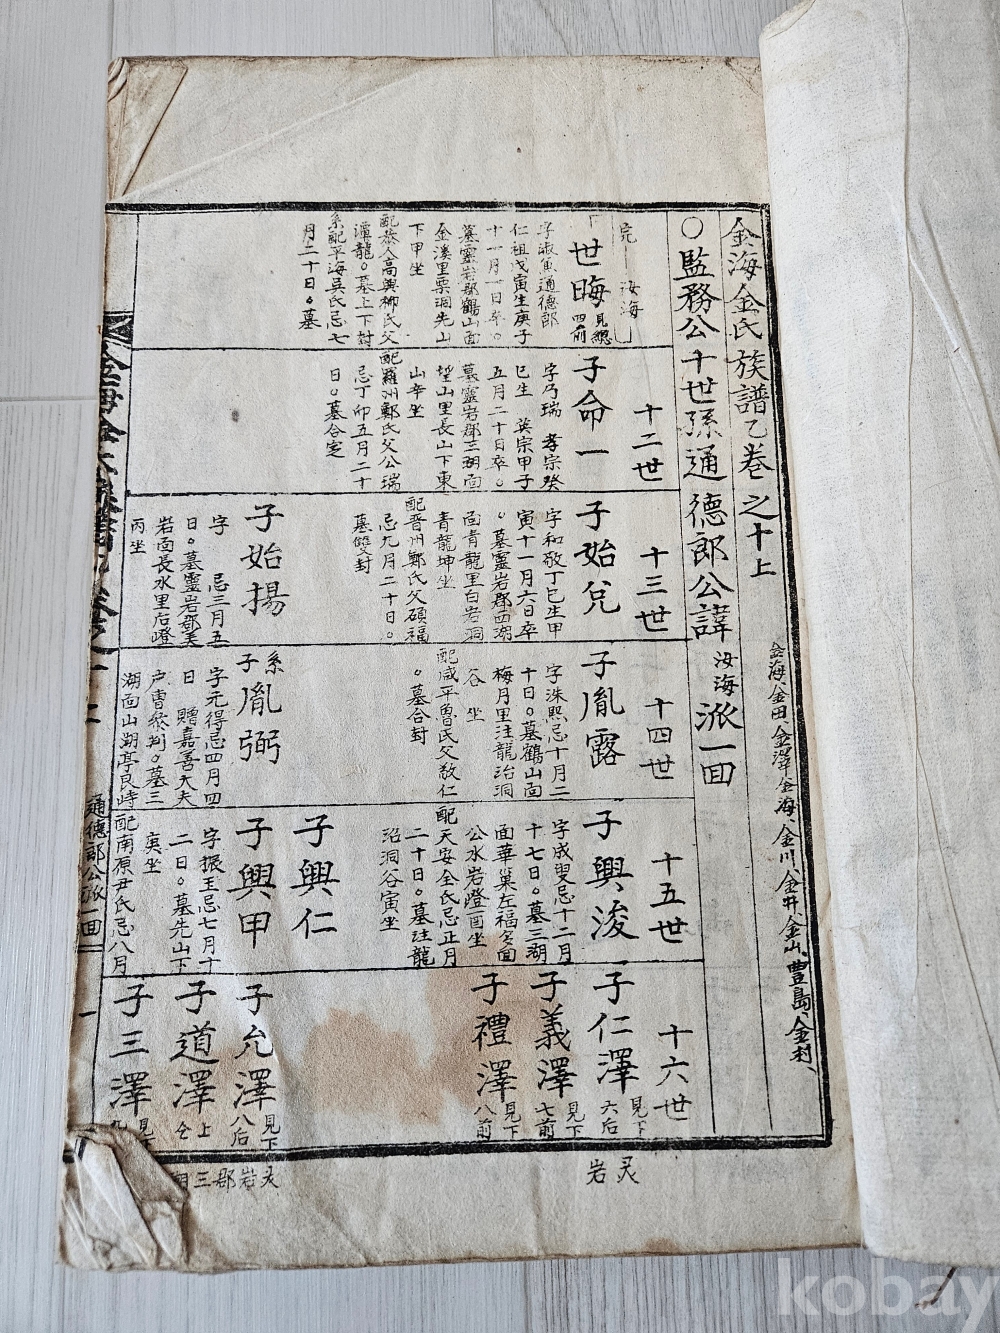 金海金氏族譜乙卷之十上
金海、金田、金澤、金海、金川、金井、金山、豊島、金村、
○監務公十世孫通德郎公諱汝海派一回
汝海
世晦
見總
四前
字淑魚通德郎
仁祖戊寅生庚子
十一月一日卒。
墓靈岩郡鶴山面
金溪里栗洞先山
下甲坐
配恭人高興柳氏父
潭龍。墓上下封
系配平海吳氏忌七
月二十日。墓
十二世
子命一
字乃瑞 孝宗癸
巳生 英宗甲子
五月二十日卒。
墓靈岩郡三湖面
望山里長山下東
山辛坐
配羅州鄭氏父公瑞
忌丁卯五月二十
日。墓合窆
十三世
子始兌
字和敬丁巳生甲
寅十一月六日卒
。墓靈岩郡西湖
面青龍里白岩洞
青龍坤坐
配晋州鄭氏父碩福
忌九月二十日。
墓雙封
子始揚
字 忌三月五
日。墓靈岩郡美
岩面長水里后嶝
丙坐
十四世
子胤露
字洙熙忌十月二
十日。墓鶴山面
梅月里注龍治洞
谷 坐
配咸平魯氏父敬仁
。墓合封
系
子胤弼
字元得忌四月四
日 贈嘉善大夫
户曹參判。墓三
湖面山湖亭艮時
十五世
子興浚
字成叟忌十二月
十七日。墓三湖
面華巢左福多面
公水岩燈酉坐
配天安全氏忌正月
二十日。墓注龍
沼洞谷寅坐
子興仁
子興甲
字振玉忌七月十
二日。墓先山下
庚坐
配南原尹氏忌八月
十六世
子仁澤
見下
六后
子義澤
見下
七前
子禮澤
見下
八前
子允澤
見下
八后
子道澤
上仝
子三澤
見下
灵岩
灵岩郡三
通德郎公派一回
一
kobay